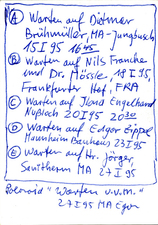 A Warten auf Dietmar
Brühmüller, MA-Jungbusch
15 I 95 16 45
B Warten auf Nils Francke
und Dr. Mössle, 18 I 95,
Frankfurter Hof, FRA
C Warten auf Horst Engelhard
Nußloch 20 I 95 20 30
D Warten auf Edgar Eippel
Mannheim Bauhaus 23 I 95
E Warten auf Hr. Jörger,
Senftherm MA 27 I 95
Polaroid "Warten u.v.m."
27 I 95 MA Egon